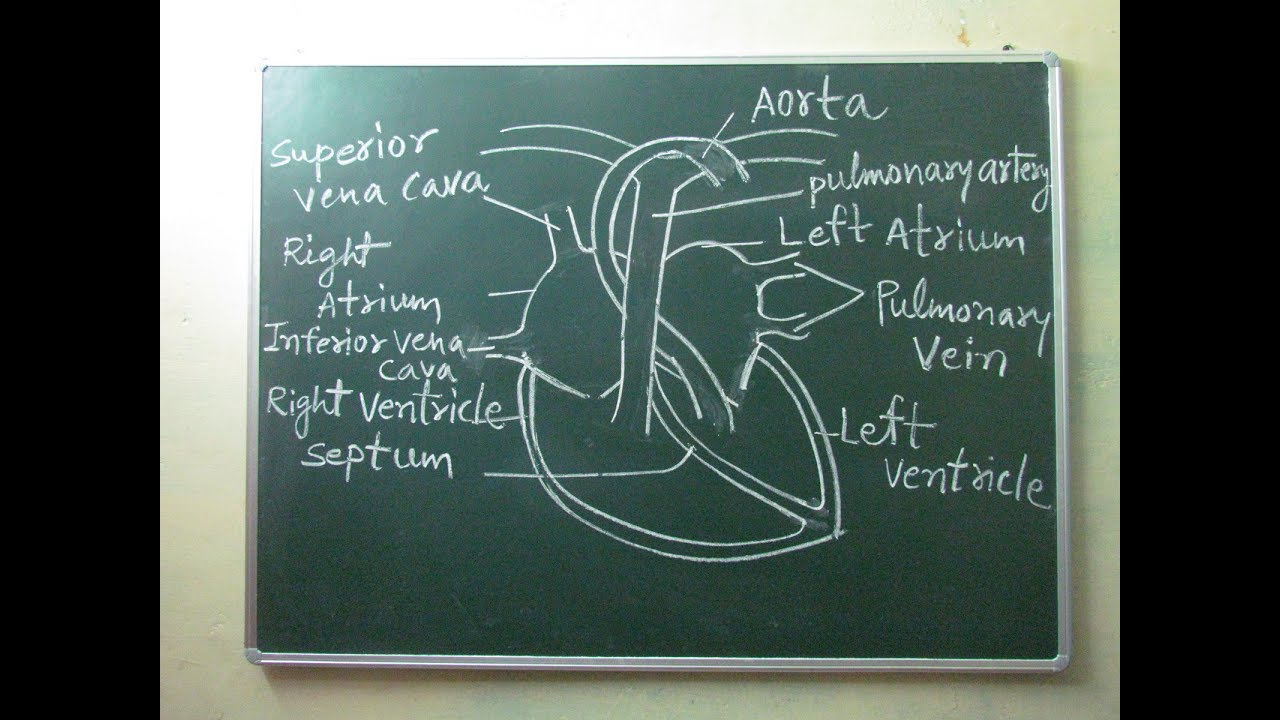 Aorta
Superior
Vena Cava
Pulmonary artery
Left Atrium
Right
Atrium
Pulmonary
Vein
Inferior Vena
Cava
Right Ventricle
Septum
Left
Ventricle